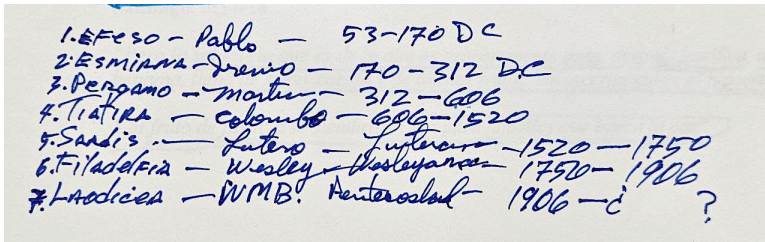 1. EFESO - Pablo - 53-170 DC
2. ESMIRNA - Irenio - 170-312 DC
3. PERGAMO - Martin - 312-606
4. TIATIRA - Colombo - 606-1520
5. Sardis. - Lutero - Luterano - 1520-1750
6. FiladelFia - Wesley - Wesleyanos - 1750-1906
7. LAodicea - WMB. Pentecostal - 1906-¿ ?